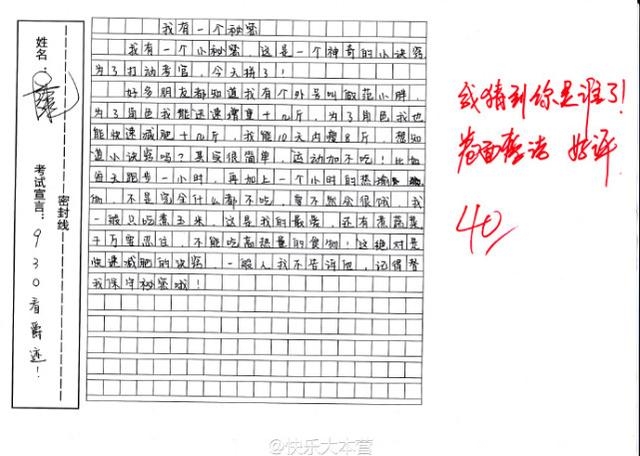 姓名：
考试宣言：930看爵迹！
密封线
我有一个秘密
我有一个小秘密，这是一个神奇的小诀窍，
为了打动考官，今天拼了！
好多朋友都知道我有个外号叫敏范小胖，
为了角色我能迅速增重十几斤，为了角色我也
能快速减肥十几斤，我能10天内瘦8斤，想知
道小诀窍吗？其实很简单，运动加不吃！比如
每天跑步一小时，再加上一个小时的热瑜
，不是完全什么都不吃，要不然会很饿，我
一般只吃煮玉米，这是我的最爱，还有煮蔬菜
千万要忍住，不能吃高热量的食物！这绝对是
快速减肥的诀窍，一般人我不告诉他，记得替
我保守秘密哦！
我猜到你是谁了！
卷面整洁 好评
40
@快乐大本营